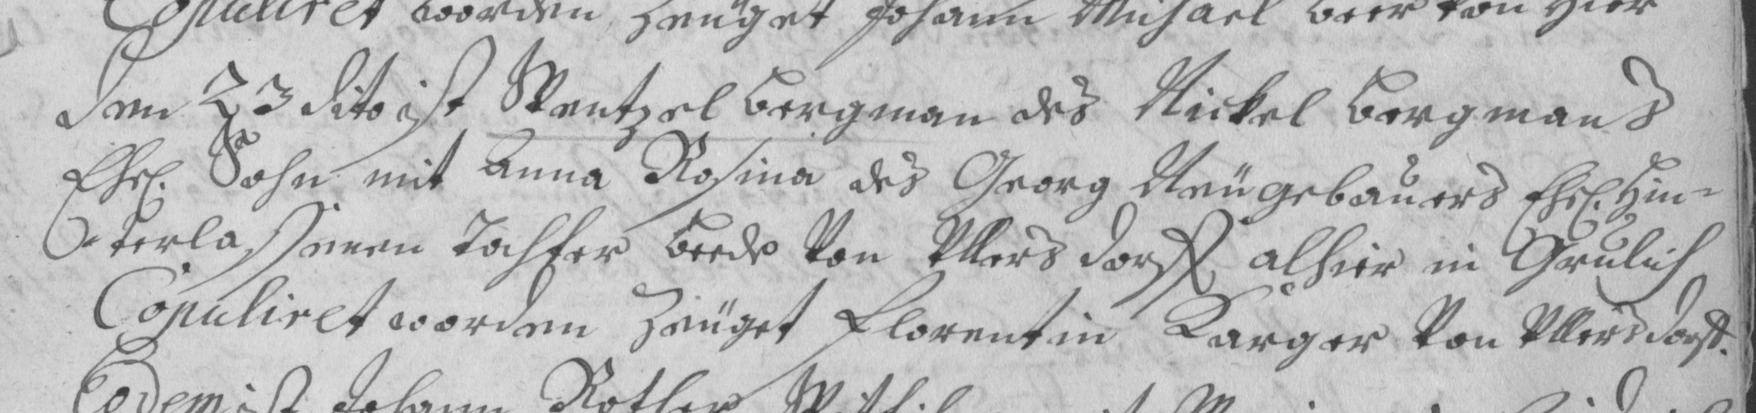 Copuliret worden Zeüget Johann Michael Beer von Hier
Den 23 dito ist Wentzel Bergman des Nickel Bergmans
Ehel. Sohn mit Anna Rosina des Georg Neügebauers Ehel. Hin=
=terlassenen Tochter beede von Ullersdorff alhier in Grulich
Copuliret worden Zeüget Florentin Karger von Ullersdorff.
Eodem ist Johann Rother